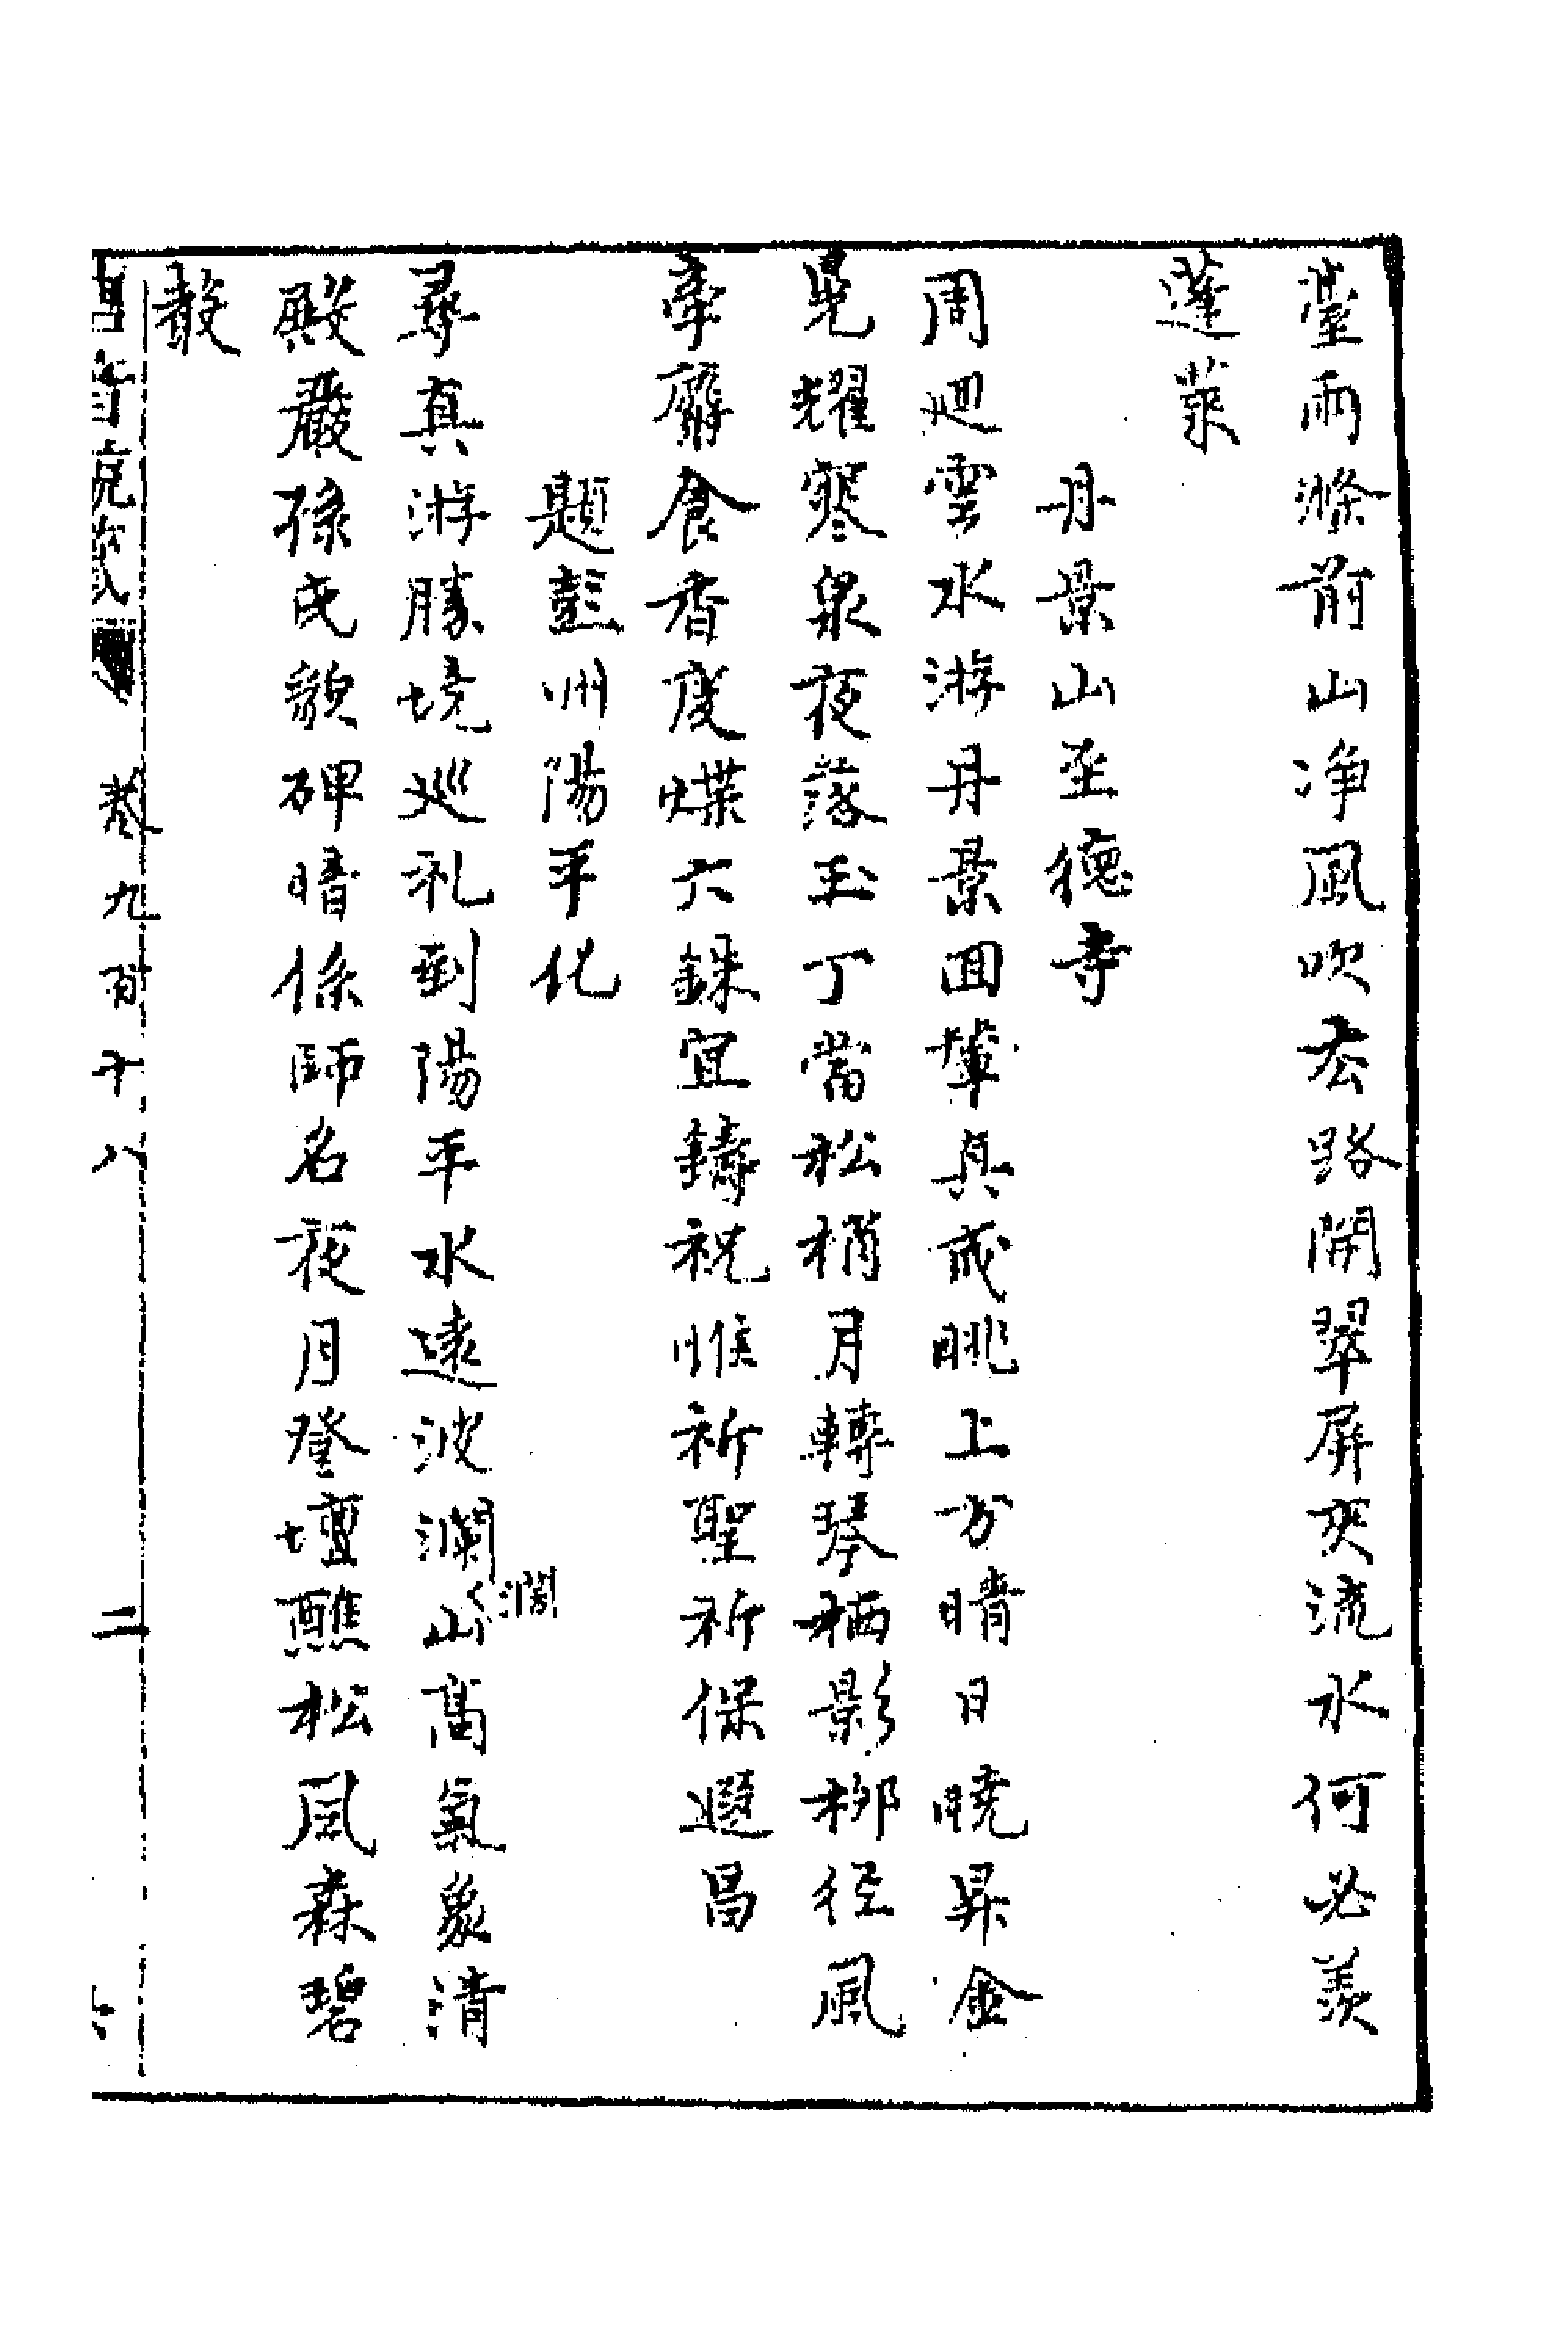 臺雨滌前山净風吹去路開翠屏夾流水何必羨
蓬萊
丹景山至德寺
周廻雲水游丹景因輦真成眺上方晴日曉昇金
晃耀寒泉夜落玉丁當松梢月轉琴栖影柳径風
牽麝食香虔㷸六銖宜鑄祝惟祈聖祚保遐昌
題彭州陽平化
尋真游勝境巡礼到陽平水遠波瀾
瀾
山高氣象清
殿嚴孫氏貌碑暗係師名夜月登壇醮松風森碧
殿
唐音統籤 卷九百十八 二